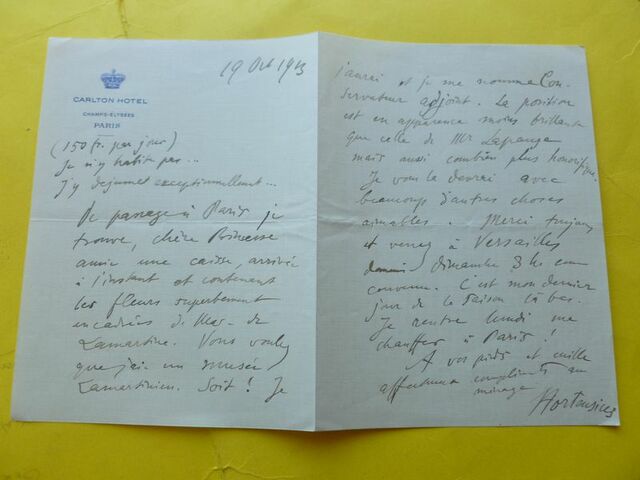 19 Oct 1913
CARLTON HOTEL
CHAMPS-ELYSÉES
PARIS
(150 fr. par jour)
Je n'y habite pas...
J'y déjeunet exceptionnellement...
De passage à Paris je
trouve, chère Princesse
amie une caisse, arrivée
à l'instant et contenant
les fleurs superbement
encadrées de Mme de
Lamartine. Vous voulez
que j'aie un musée
Lamartinien. Soit ! Je
l'aurai et je me nomme Con-
servateur adjoint. La position
est en apparence moins brillante
que celle de Mr Lapauze
mais aussi combien plus honorifique.
Je vous la devrai avec
beaucoup d'autres choses
aimables. Merci toujours
et venez à Versailles
dimanche 3 hs comme
convenu. C'est mon dernier
jour de la saison là bas.
Je rentre lundi me
chauffer à Paris !
A vos pieds et mille
affectueux compliments au
ménage